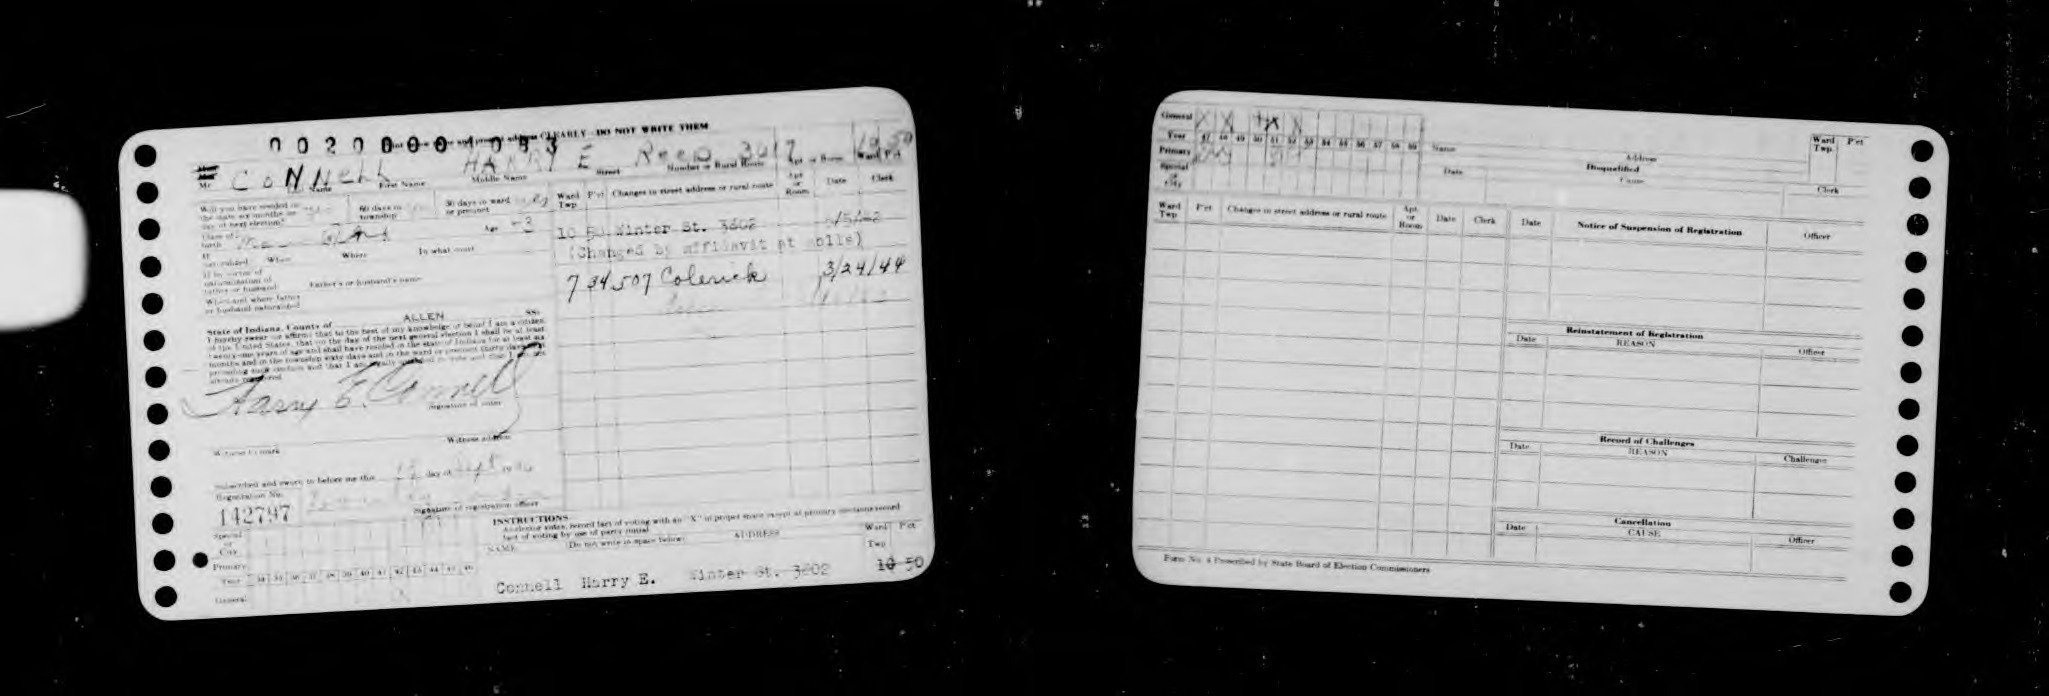 0020000 1093
Print your name and present address CLEARLY—DO NOT WRITE THEM
CONNELL HARRY E REED 3017 10 50
Mr. Name First Name Middle Name Street Number or Rural Route Apt. or Room Ward P'ct
Will you have resided in the state six months on day of next election? 60 days in township 30 days in ward or precinct
Ward Twp. P'ct Changes in street address or rural route Apt. or Room Date Clerk
Age
10 50 Winter St. 3602
(Changed by affidavit at polls)
When Where In what court
7 34 507 Colerick 3/24/44
Father's or husband's name
When and where father or husband naturalized
State of Indiana, County of ALLEN SS:
I hereby swear (or affirm) that to the best of my knowledge or belief I am a citizen
of the United States, that on the day of the next general election I shall be at least
twenty-one years of age and shall have resided in the state of Indiana for at least six
months and in the township sixty days and in the ward or precinct thirty days
preceding such election and that I am legally qualified to vote and that I
already registered
Harry E. Connell
Signature of voter
Witness address
Witness to mark
Subscribed and sworn to before me this day of Sept
Registration No.
142797
Signature of registration officer
INSTRUCTIONS
As elector votes, record fact of voting with an "X" in proper space except at primary elections record
fact of voting by use of party initial
Special or City
NAME Do not write in space below: ADDRESS Ward Twp P'ct
Primary
Year 34 35 36 37 38 39 40 41 42 43 44 45 46
General
Connell Harry E. Winter St. 3602 10 50
General X X X X
Year 47 48 49 50 51 52 53 54 55 56 57 58 59
Name Address Ward Twp. P'ct
Primary
Special or City
Disqualified
Date Cause Clerk
Ward Twp. P'ct Changes in street address or rural route Apt. or Room Date Clerk
Date Notice of Suspension of Registration Officer
Reinstatement of Registration
Date REASON Officer
Record of Challenges
Date REASON Challenger
Cancellation
Date CAUSE Officer
Form No. 4 Prescribed by State Board of Election Commissioners